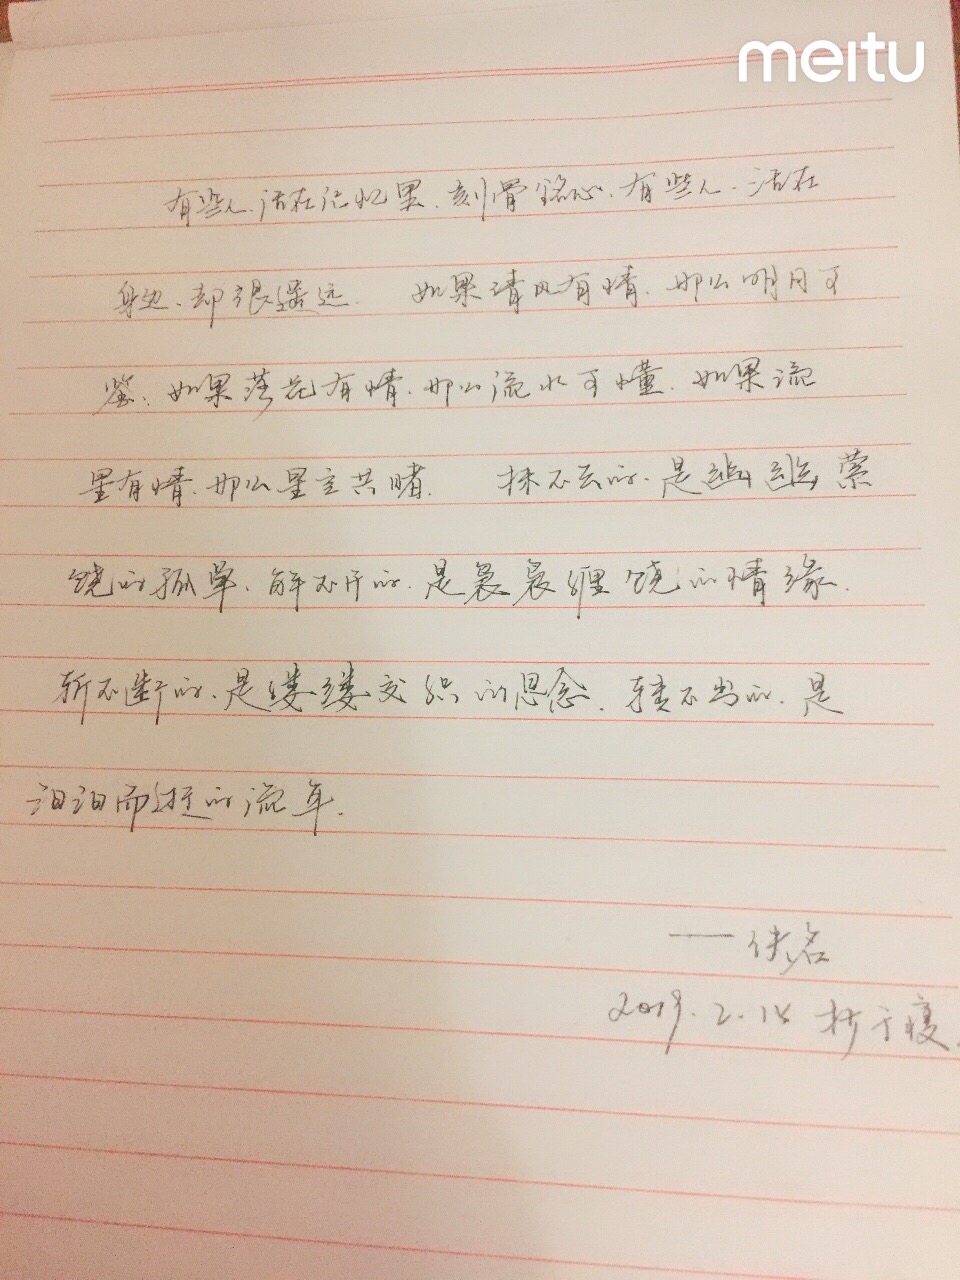 meitu
有些人、活在记忆里、刻骨铭心、有些人、活在
身边、却很遥远. 如果清风有情、那么明月可
鉴、如果落花有情、那么流水可懂、如果流
星有情、那么星空共睹. 抹不去的、是幽幽萦
绕的孤单、解不开的、是袅袅缠绕的情缘.
斩不断的、是缕缕交织的思念、转不出的、是
汩汩而逝的流年.
——佚名
2019.2.14 抄于